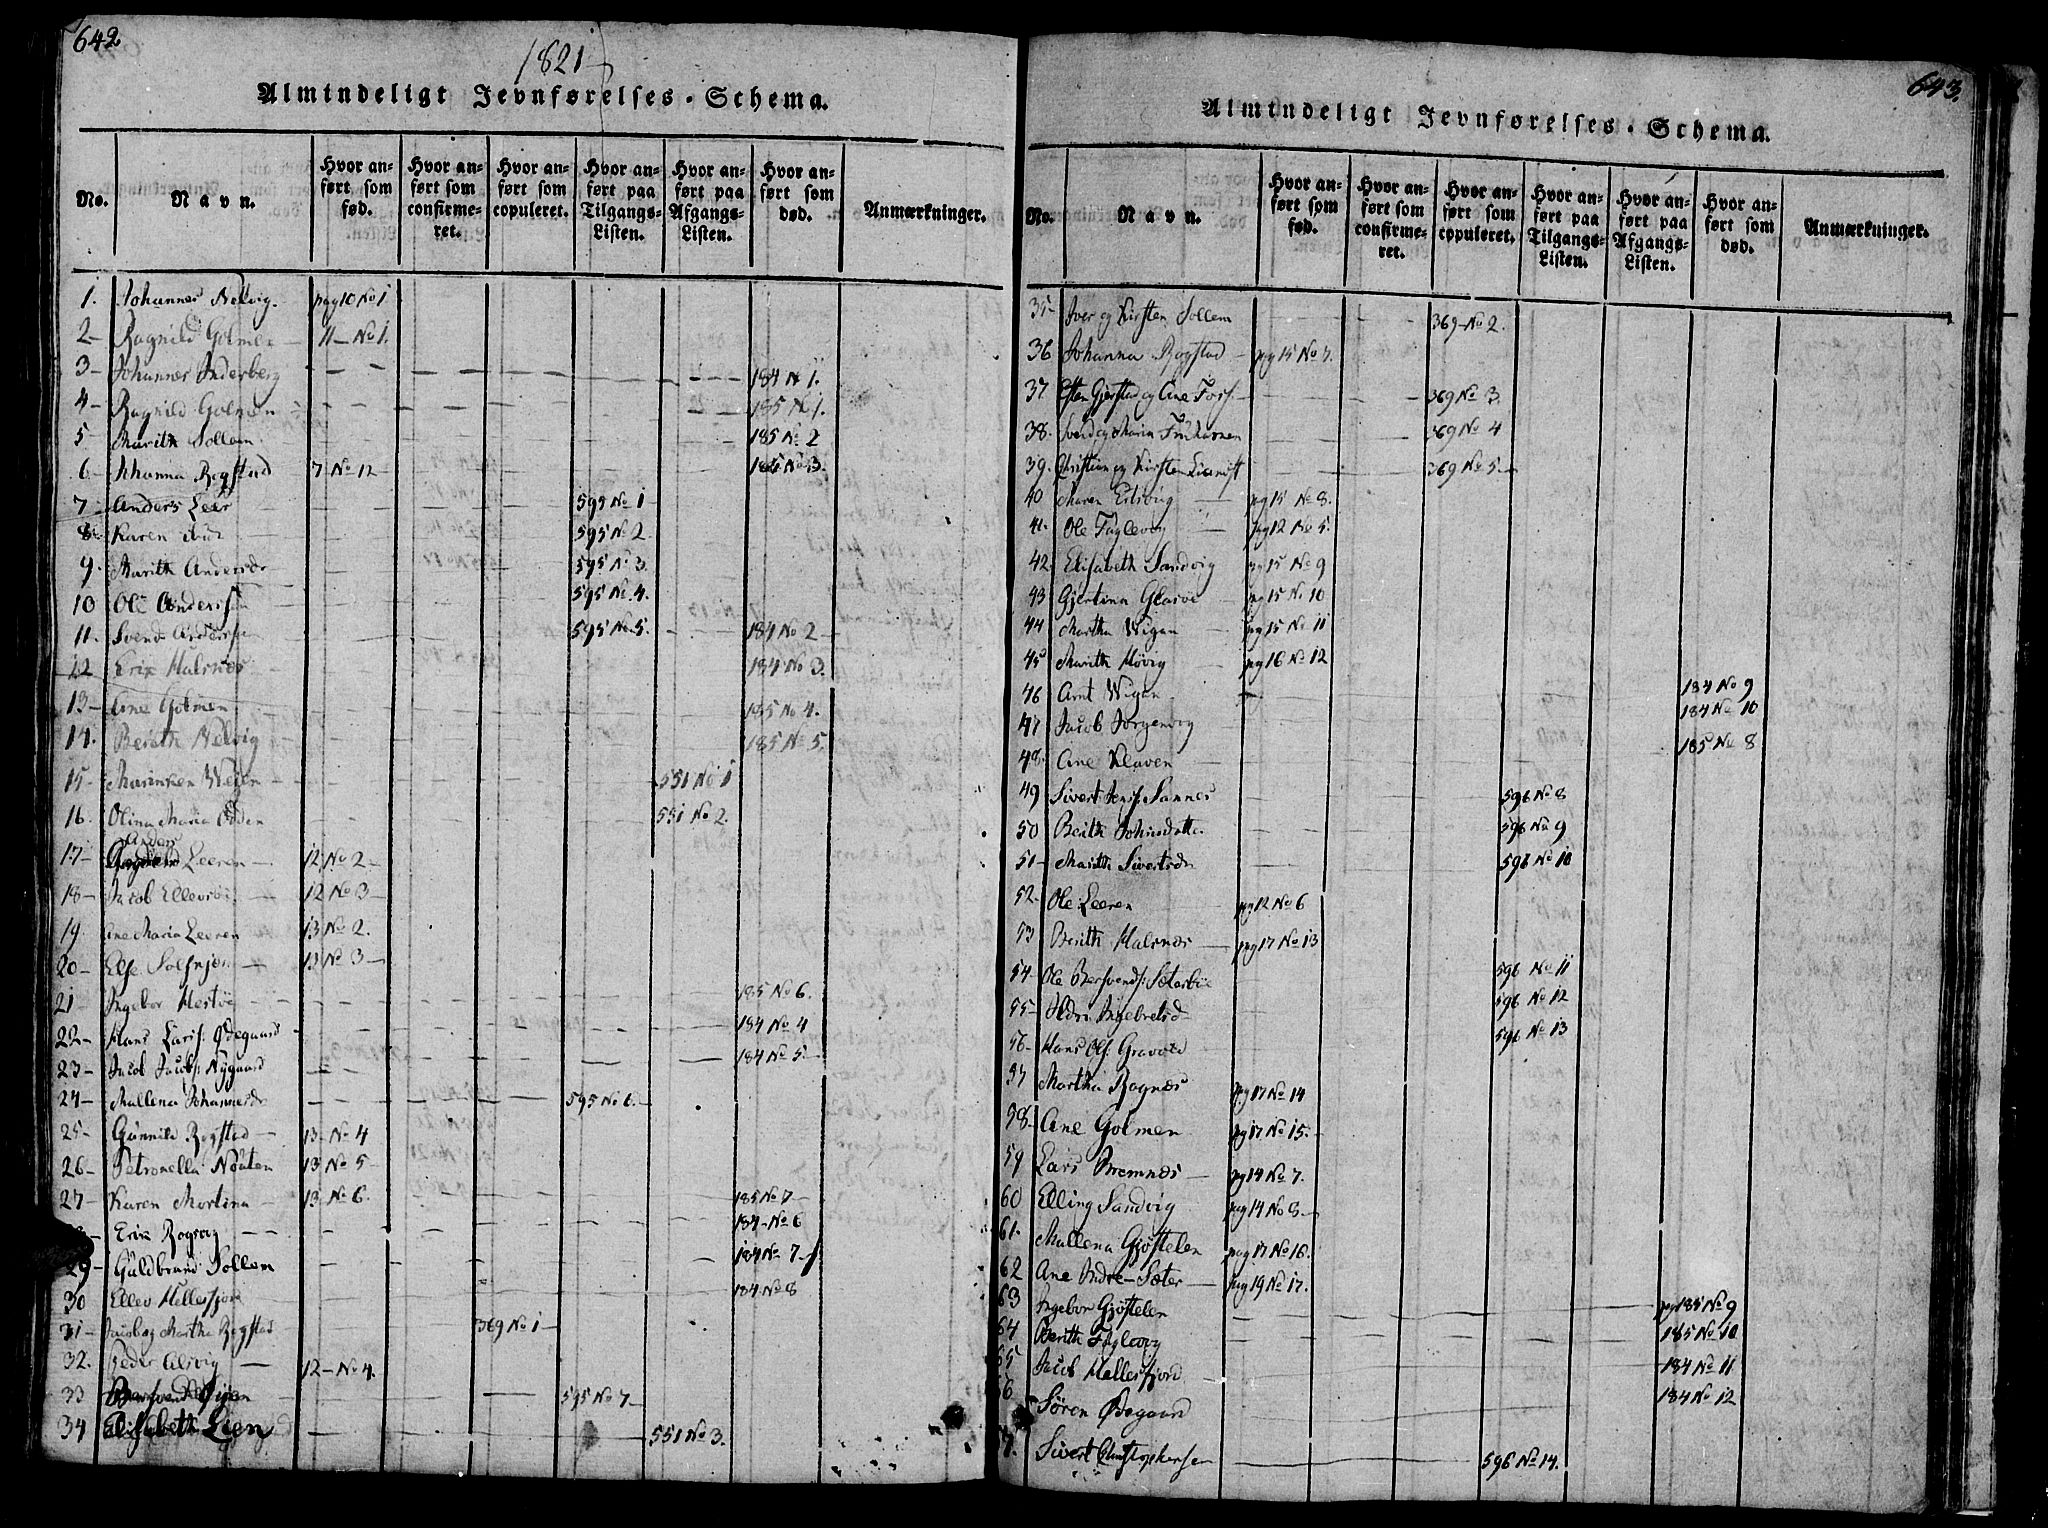 642
1821
Almindeligt Jevnførelses-Schema.
No. Navn. Hvor anført som fød. Hvor anført som confirmeret. Hvor anført som copuleret. Hvor anført paa Tilgangs-Listen. Hvor anført paa Afgangs-Listen. Hvor anført som død. Anmærkninger.
1. Johannes Nelvig. pag 10 No 1
2 Ragnild Golmen 11 No 1.
3 Johannes Inderberg 184 No 1.
4 Ragnild Golmen 185 No 1.
5 Marith Sollem 185 No 2
6 Johanna Rogstad 7 No 12 185 No 3.
7 Anders Leer 595 No 1
8 Karen 595 No 2
9. Marith Andersdr 595 No 3.
10 Ole Anderssen 595 No 4.
11. Svend Anderssen 595 No 5. 184 No 2
12 Erix Halsnæs 184 No 3.
13 Ane Golmen 185 No 4.
14. Berith Nelvig 185 No 5.
15 Marinken Wigen 551 No 1
16. Olina Maria Odden 551 No 2.
17 Anders Leeren 12 No 2
18 Jacob Ellevsøe 12 No 3
19. Ane Maria Leeren 13 No 2.
20 Else 13 No 3
21 Ingebor Mestøe 185 No 6.
22 Hans Larss: Ødegaard 184 No 4
23 Jacob Jacobs: Nygaard 184 No 5.
24 Mallena Johannesdr 595 No 6.
25 Gunnild Rogstad 13 No 4
26 Petronella Nøsten 13 No 5
27 Karen Mortina 13 No 6. 185 No 7
Erix Rogsvog 184 No 6
29 Guldbrand Sollem 184 No 7
30 Ellev Hellesfjord 184 No 8
31 Jacob og Martha Rogstad 369 No 1
32. Peder Alsvig 12 No 4.
33 595 No 7
34 Elisabeth Lien 551 No 3.
643.
Almindeligt Jevnførelses-Schema.
No. Navn. Hvor anført som fød. Hvor anført som confirmeret. Hvor anført som copuleret. Hvor anført paa Tilgangs-Listen. Hvor anført paa Afgangs-Listen. Hvor anført som død. Anmærkninger.
35 Iver og Kirsten Sollem 369 No 2.
36 Johanna Rogstad pag 15 No 7.
37 Esten Gjerstad og Ane Fors 369 No 3.
38. Svend og Maria 369 No 4
39. Christian og Kirsten 369 No 5
40 Maren pag 15 No 8.
41. Ole Fuglevog pag 12 No 5.
42. Elisabeth Sandvig pag 15 No 9
43 Gjertina pag 15 No 10
44 Martha Wigen pag 15 No 11
45 Marith Høvig pag 16 No 12
46 Arnt Wigen 184 No 9
47 Jacob Jørgenvog 184 No 10
48. Ane Kleven 185 No 8
49 Sivert Jenss: Sannes 596 No 8
50 Berith Johnsdatter 596 No 9
51 Marith Sivertsdr 596 No 10
52 Ole Leeren pag 12 No 6
53 Berith Halsnæs pag 17 No 13
54 Ole Bersvends: Sæterbøe 596 No 11
55 Ildri Ingebretsd 596 No 12
56 Hans Ols: Gravvold 596 No 13
57 Martha Rognæs pag 17 No 14
58. Ane Golmen pag 17 No 15.
59 Lars Bremnæs pag 14 No 7.
60 Elling Sandvig pag 14 No 8
61. Mallena Gjøstelen pag 17 No 16.
62 Ane Indre-Sæter pag 19 No 17.
63 Ingebor Gjøstelen pag 185 No 9
64 Berith Fuglevog 185 No 10
65 Jacob Hellesfjord 184 No 11
Søren Ødegaard 184 No 12
Sivert Christophersen 596 No 14.